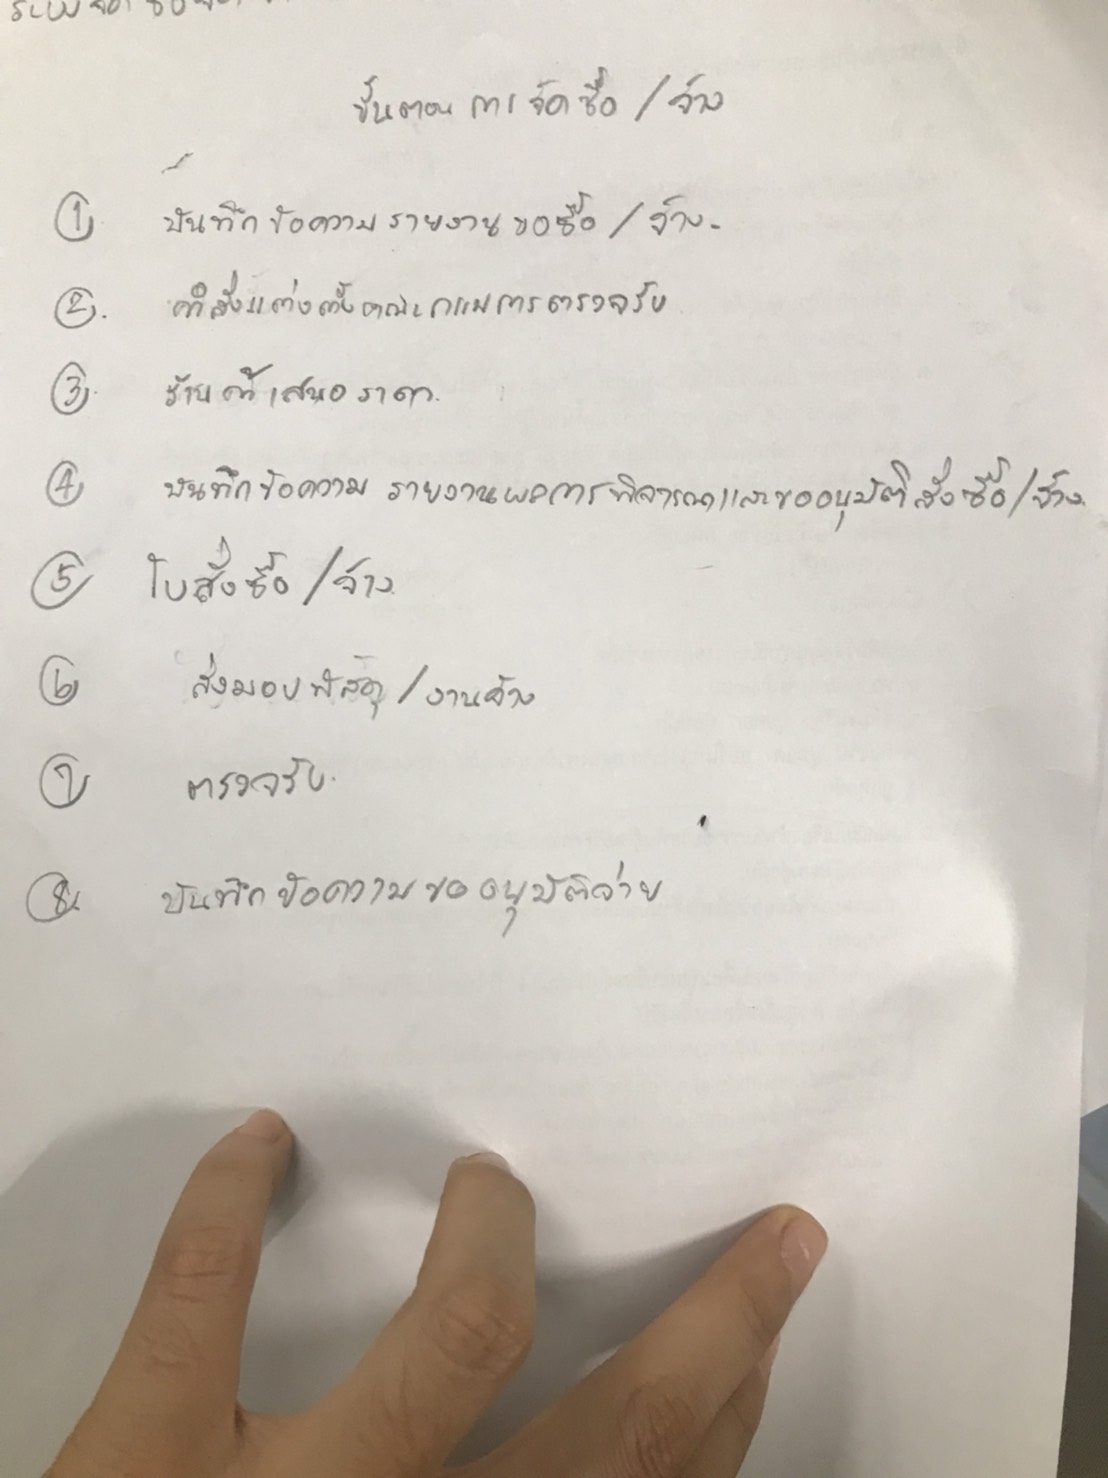 ขั้นตอน การ จัด ซื้อ / จ้าง
① บันทึก ข้อความ รายงาน ขอซื้อ / จ้าง.
②. คำสั่งแต่งตั้งคณะกรรมการตรวจรับ
③. ร้านค้า เสนอ ราคา.
④ บันทึกข้อความ รายงานผลการพิจารณาและขออนุมัติ สั่ง ซื้อ / จ้าง.
⑤ ใบสั่งซื้อ / จ้าง.
๖ ส่งมอบ พัสดุ / งานจ้าง
⑦ ตรวจรับ.
⑧. บันทึกข้อความขออนุมัติจ่าย